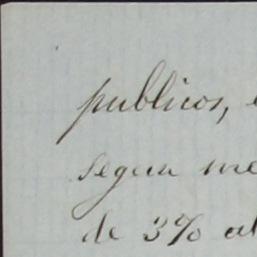 publicos,
segun me
de 3% al